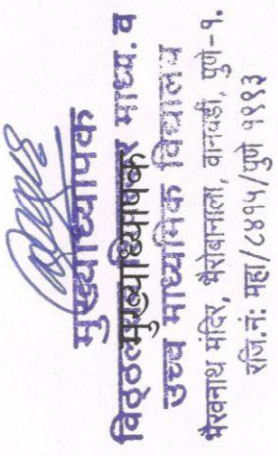 मुख्याध्यापक
मुख्याध्यापक
माध्य. व
उच्च माध्यमिक विद्यालय
भैरवनाथ मंदिर, भैरोबानाला, वानवडी, पुणे-१.
रजि.नं: महा/८४१५/पुणे १९९३